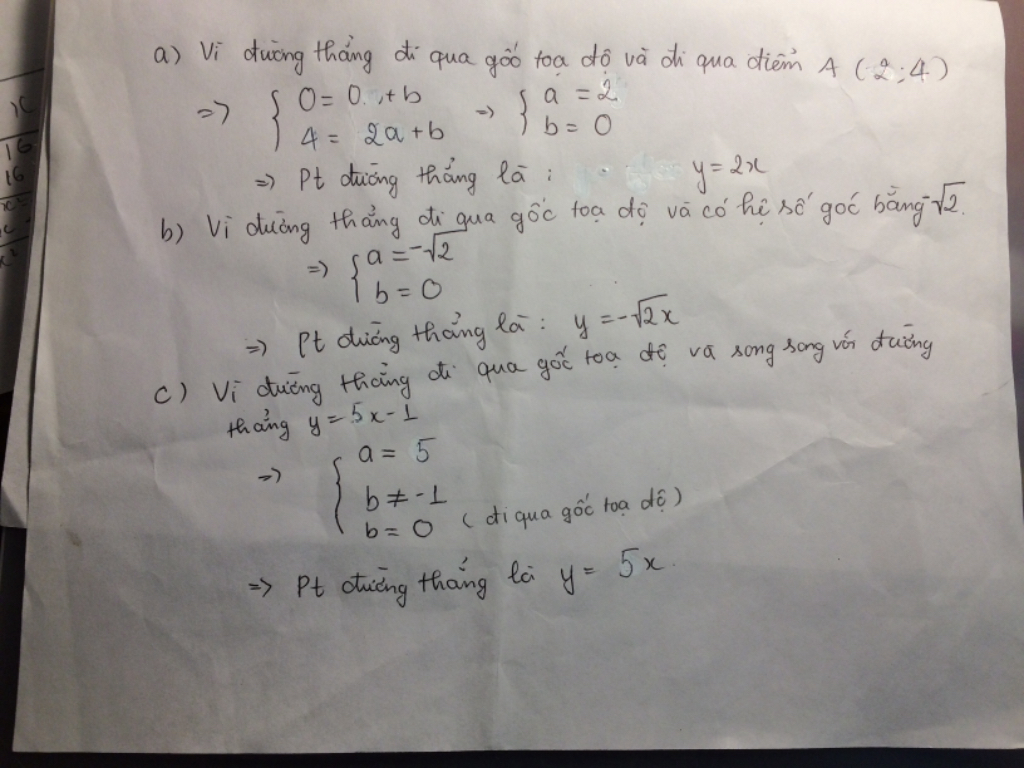 a) Vì đường thẳng đi qua gốc toạ độ và đi qua điểm A (2;4)
=> { 0 = 0. + b => { a = 2
4 = 2a + b b = 0
=> Pt đường thẳng là : y = 2x
b) Vì đường thẳng đi qua gốc toạ độ và có hệ số góc bằng -√2.
=> { a = -√2
b = 0
=> Pt đường thẳng là : y = -√2x
c) Vì đường thẳng đi qua gốc toạ độ và song song với đường
thẳng y = 5x - 1
=> { a = 5
b ≠ -1
b = 0 (đi qua gốc toạ độ)
=> Pt đường thẳng là y = 5x.